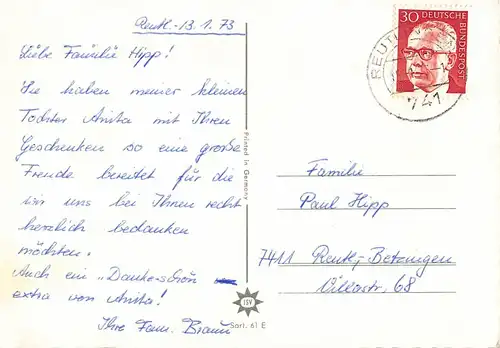 Reutl.-13.1.73
Liebe Familie Hipp!
Sie haben meiner kleinen
Tochter Anita mit Ihren
Geschenken so eine große
Freude bereitet für die
wir uns bei Ihnen recht
herzlich bedanken
möchten.
Auch ein „Danke-schön
extra von Anita!
Ihre Fam. Braun
Printed in Germany
ISV
Sort. 61 E
30 DEUTSCHE BUNDESPOST
REUTL
741
Familie
Paul Hipp
7411 Reutl.-Betzingen
Villastr. 68